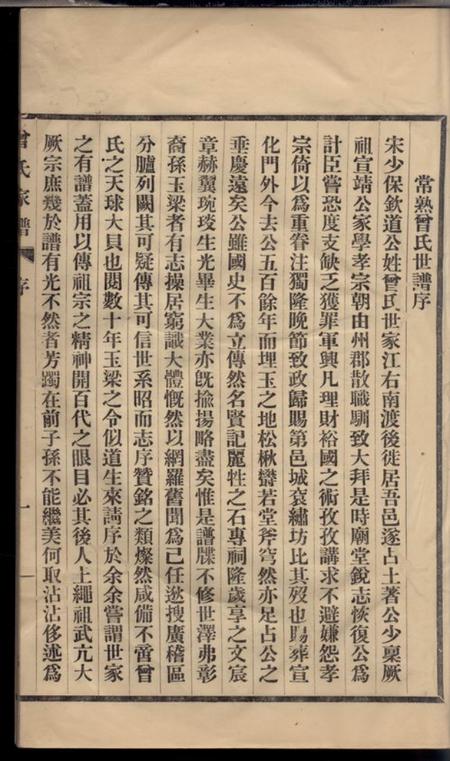 常熟曾氏世譜序
宋少保欽道公姓曾氏世家江右南渡後徙居吾邑遂占土著公少稟厥
祖宣靖公家學孝宗朝由州郡散職馴致大拜是時廟堂銳志恢復公為
計臣嘗恐度支缺乏獲罪軍興凡理財裕國之術孜孜講求不避嫌怨孝
宗倚以為重眷注獨隆晚節致政歸賜第邑城袞繡坊比其歿也賜葬宣
化門外今去公五百餘年而埋玉之地松楸鬱若堂斧穹然亦足占公之
垂慶遠矣公雖國史不為立傳然名賢記麗牲之石專祠隆歲享之文宸
章赫翼琬琰生光畢生大業亦旣揄揚略盡矣惟是譜牒不修世澤弗彰
裔孫玉梁者有志操居窮識大體慨然以網羅舊聞為己任逖搜廣稽區
分臚列闕其可疑傳其可信世系昭而志序贊銘之類燦然咸備不啻曾
氏之天球大貝也閱數十年玉梁之令似道生來請序於余余嘗謂世家
之有譜蓋用以傳祖宗之精神開百代之眼目必其後人上繩祖武亢大
厥宗庶幾於譜有光不然者芳躅在前子孫不能繼美何取沾沾侈述為
曾氏家譜 序 一